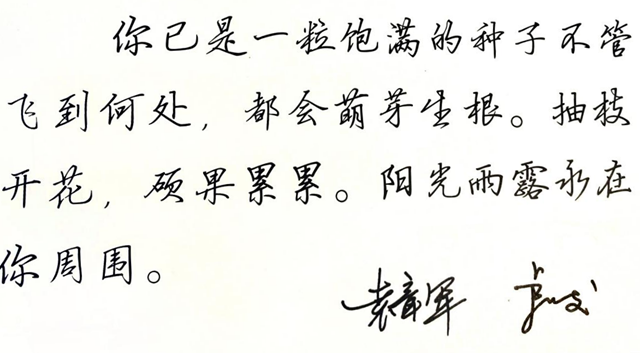 你已是一粒饱满的种子不管
飞到何处，都会萌芽生根。抽枝
开花，硕果累累。阳光雨露永在
你周围。
袁章军